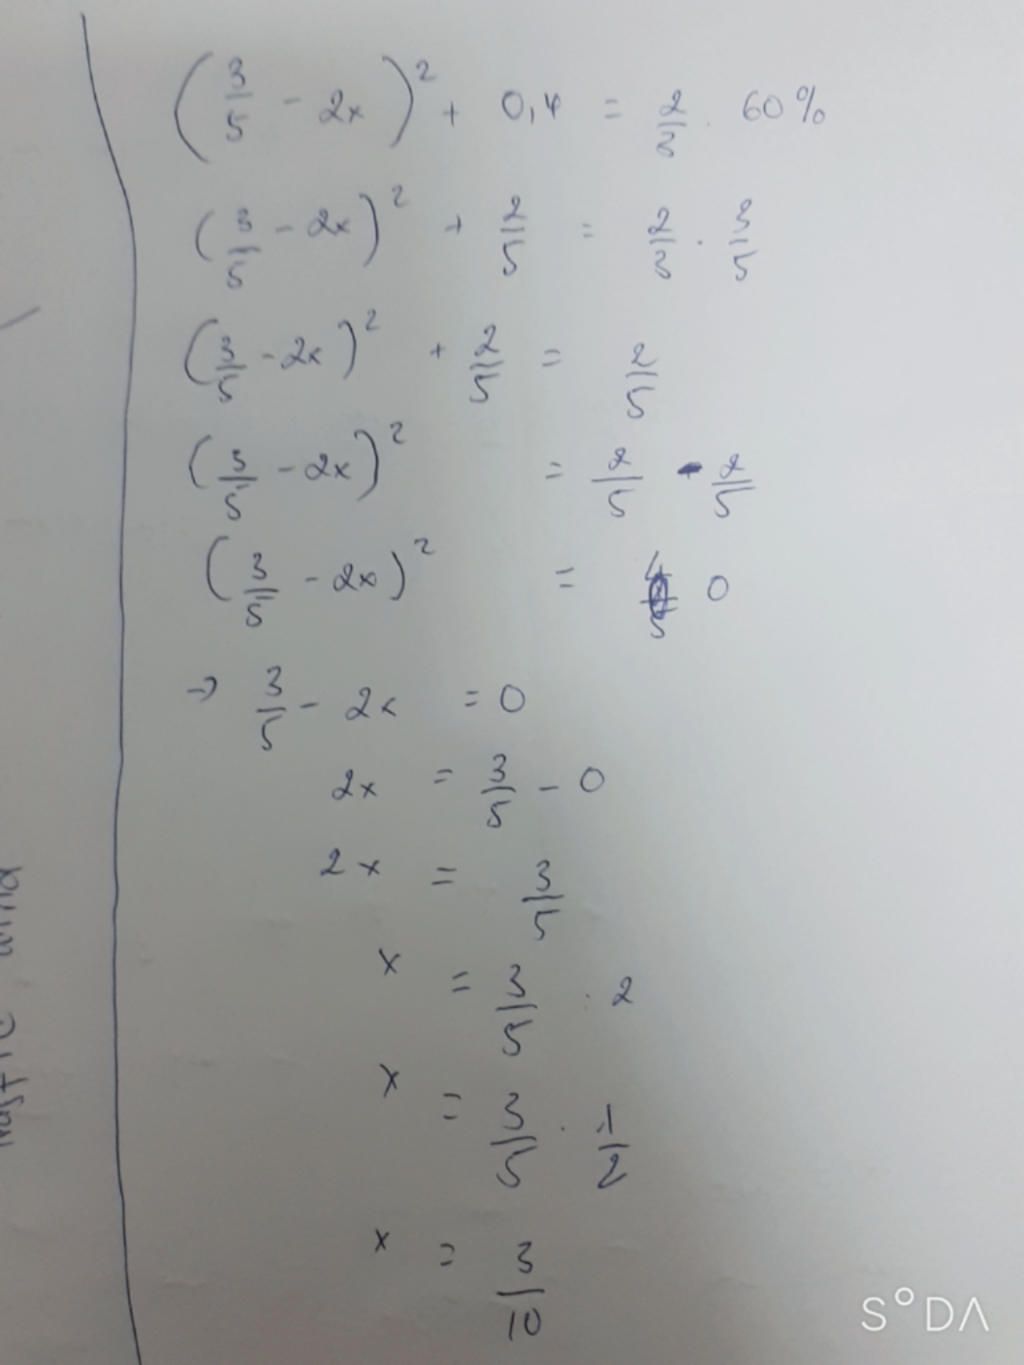 (3/5 - 2x)² + 0,4 = 2/3 . 60%
(3/5 - 2x)² + 2/5 = 2/3 . 3/5
(3/5 - 2x)² + 2/5 = 2/5
(3/5 - 2x)² = 2/5 - 2/5
(3/5 - 2x)² = 0
→ 3/5 - 2x = 0
2x = 3/5 - 0
2x = 3/5
x = 3/5 : 2
x = 3/5 . 1/2
x = 3/10
S°DA